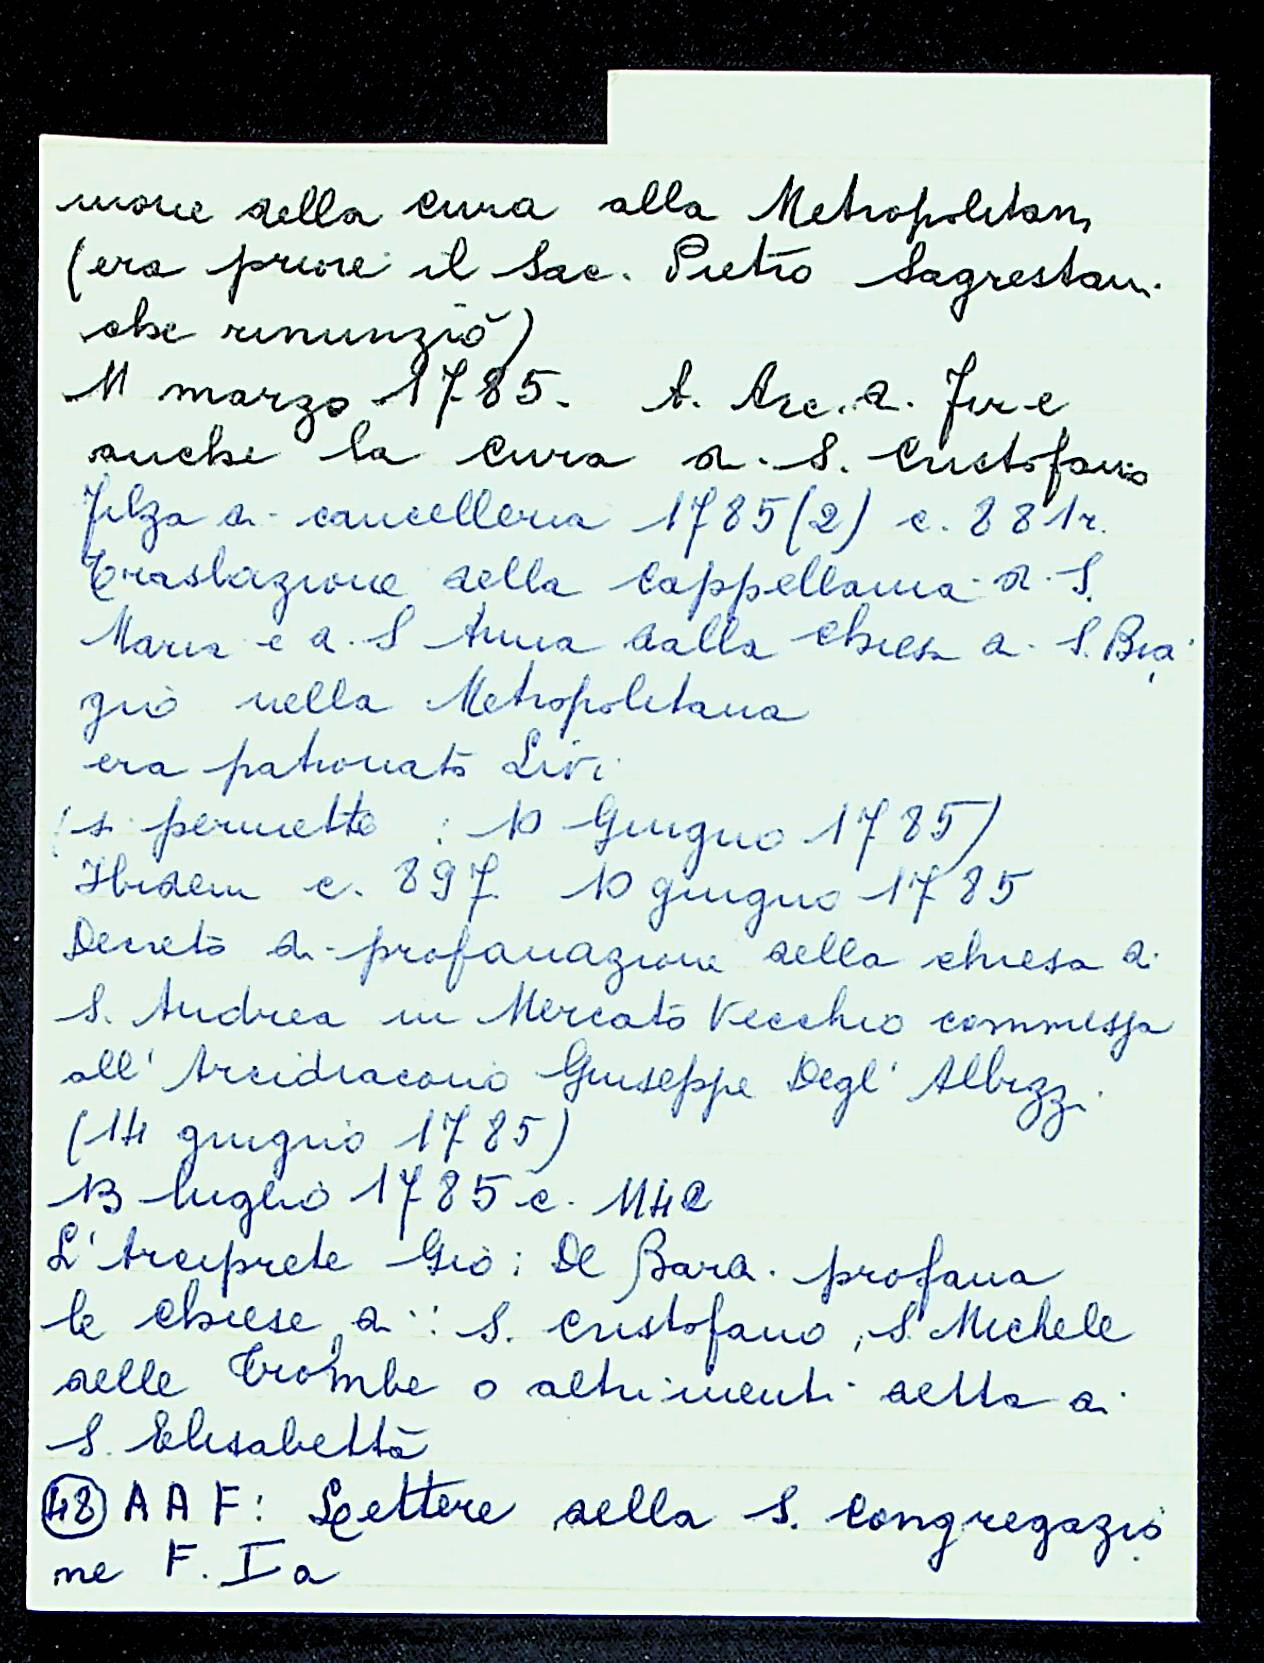 nione della cura alla Metropolitana
(era priore il Sac. Pietro Sagrestani
che rinunziò)
11 marzo 1785. A. Arc. di Fire
anche la cura di S. Cristofano
Filza di cancelleria 1785(2) c. 881r.
Traslazione della Cappellania di S.
Maria e di S Anna dalla chiesa di S. Bia
gio nella Metropolitana
era patronato Livi
(si permette : 10 Giugno 1785)
Ibidem c. 897 10 giugno 1785
Decreto di profanazione della chiesa di
S. Andrea in Mercato Vecchio commessa
all' Arcidiacono Giuseppe Degl' Albizzi
(14 giugno 1785)
13 luglio 1785 c.
L'Arciprete Gio: De Bardi profana
le chiese di : S. Cristofano, S. Michele
delle Trombe o altrimenti detta di
S. Elisabetta
(48) A A F: Lettere della S. Congregazio
ne F. I a